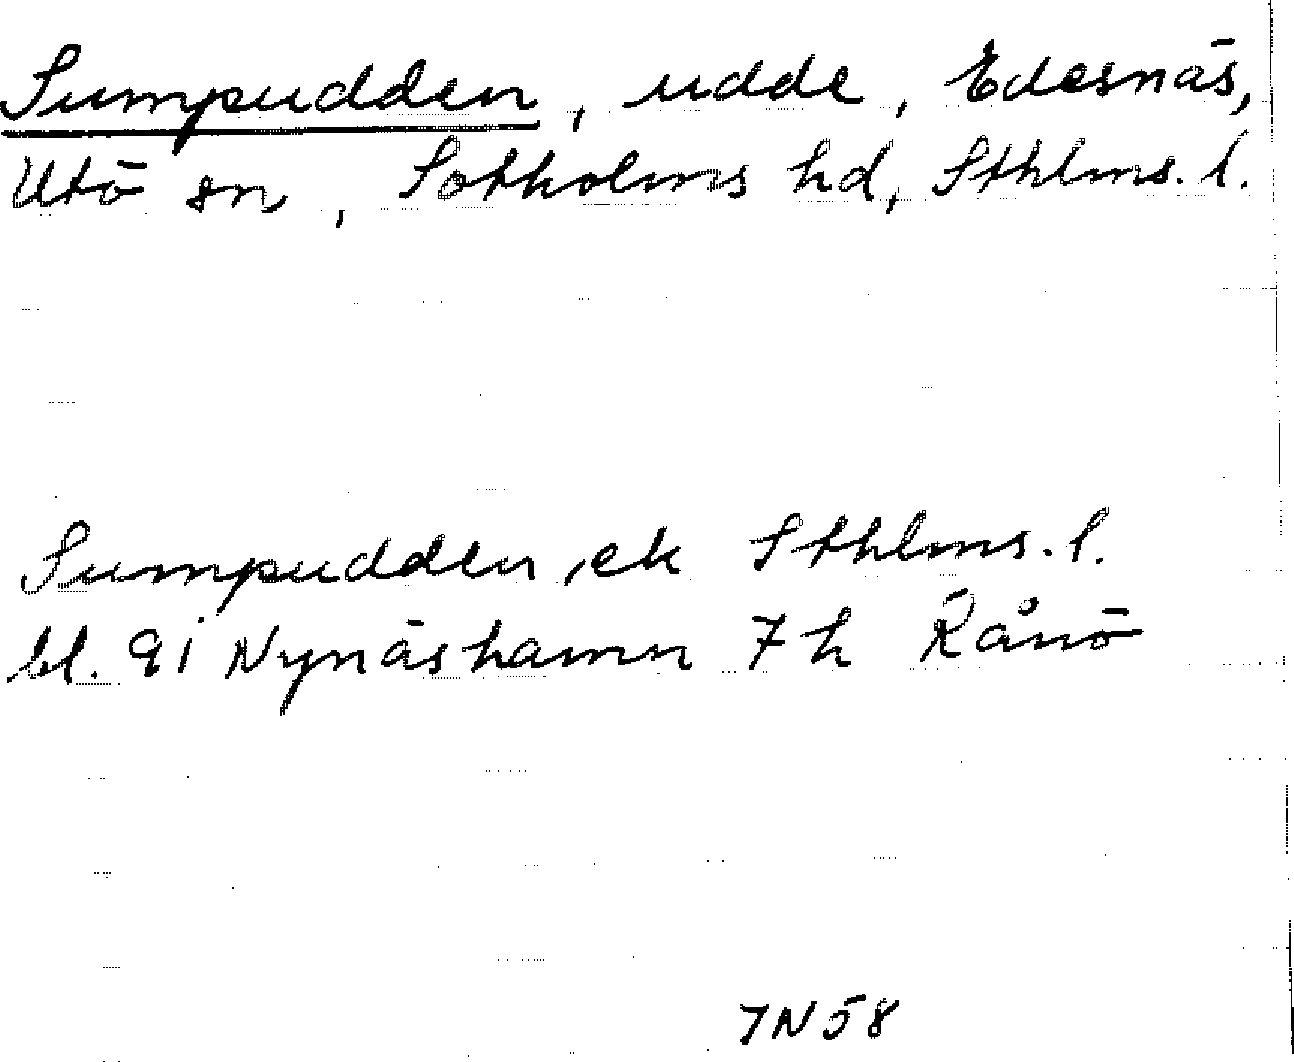 Sumpudden, udde, Edesnäs,
Utö sn, Sotholms hd, Sthlms. l.
Sumpudden, ek Sthlms. l.
bl. 9i Nynäshamn 7h Rånö
7N58